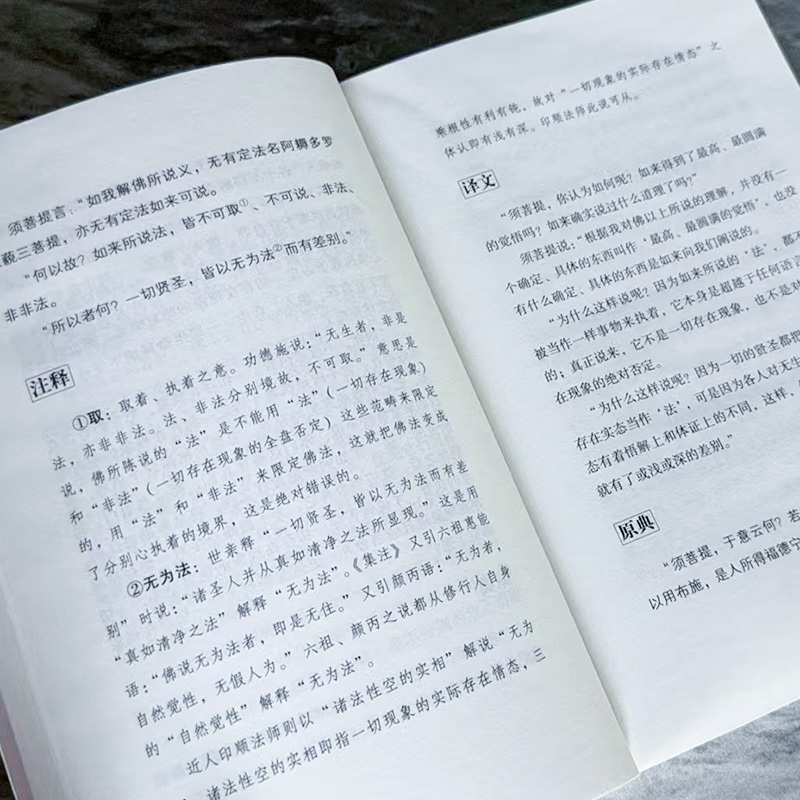 须菩提言：“如我解佛所说义，无有定法名阿耨多罗
三菩提，亦无有定法如来可说。
“何以故？如来所说法，皆不可取①、不可说、非法、
非非法。
“所以者何？一切贤圣，皆以无为法②而有差别。”
注释
①取：取着、执着之意。功德施说：“无生者，非是
法，亦非非法。法、非法分别境故，不可取。”意思是
说，佛所陈说的“法”是不能用“法”（一切存在现象）
和“非法”（一切存在现象的全盘否定）这些范畴来限定
的，用“法”和“非法”来限定佛法，这就把佛法变成
了分别心执着的境界，这是绝对错误的。
②无为法：世亲释“一切贤圣，皆以无为法而有差
别”时说：“诸圣人并从真如清净之法所显现。”这是用
“真如清净之法”解释“无为法”。《集注》又引六祖惠能
语：“佛说无为法者，即是无住。”又引颜丙语：“无为者，
自然觉性，无假人为。”六祖、颜丙之说都从修行人自身
的“自然觉性”解释“无为法”。
近人印顺法师则以“诸法性空的实相”解说“无为
诸法性空的实相即指一切现象的实际存在情态，三
乘根性有利有钝，故对“一切现象的实际存在情态”之
体认即有浅有深。印顺法师此说可从。
译文
“须菩提，你认为如何呢？如来得到了最高、最圆满
的觉悟吗？如来确实说过什么道理了吗？”
须菩提说：“根据我对佛以上所说的理解，并没有一
个确定、具体的东西叫作‘最高、最圆满的觉悟’，也没
有什么确定、具体的东西是如来向我们阐说的。
“为什么这样说呢？因为如来所说的‘法’，都不
被当作一样事物来执着，它本身是超越于任何语言
的；真正说来，它不是一切存在现象，也不是对
在现象的绝对否定。
“为什么这样说呢？因为一切的贤圣都把
存在实态当作‘法’，可是因为各人对无生
态有着悟解上和体证上的不同，这样，
就有了或浅或深的差别。”
原典
“须菩提，于意云何？若
以用布施，是人所得福德宁